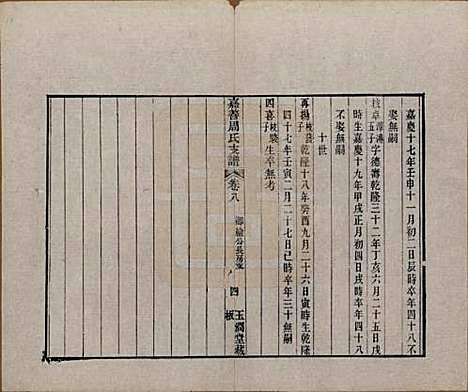 嘉慶十七年壬申十一月初二日辰時卒年四十八不
娶無嗣
五子字德壽乾隆三十二年丁亥六月二十五日戌
時生嘉慶十九年甲戌正月初四日戌時卒年四十八
不娶無嗣
十世
再揚子乾隆十八年癸酉九月二十六日寅時生乾隆
四十七年壬寅二月二十七日巳時卒年三十無嗣
四喜子生卒無考
嘉善周氏支譜 卷八 公長房 四 玉潤堂藏板